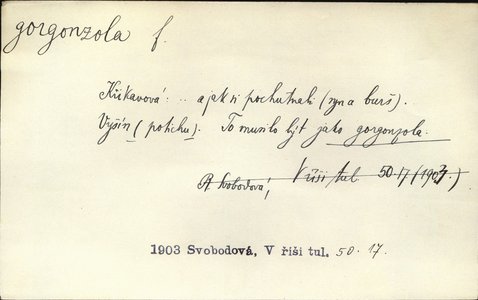 gorgonzola f.
Křikavová: .. a jak si pochutnali (syn a burš).
Vyšín (potichu). To musilo být jako gorgonzola.
R Svobodová, V říši tul. 50. 17 (1903.)
1903 Svobodová, V říši tul. 50. 17.